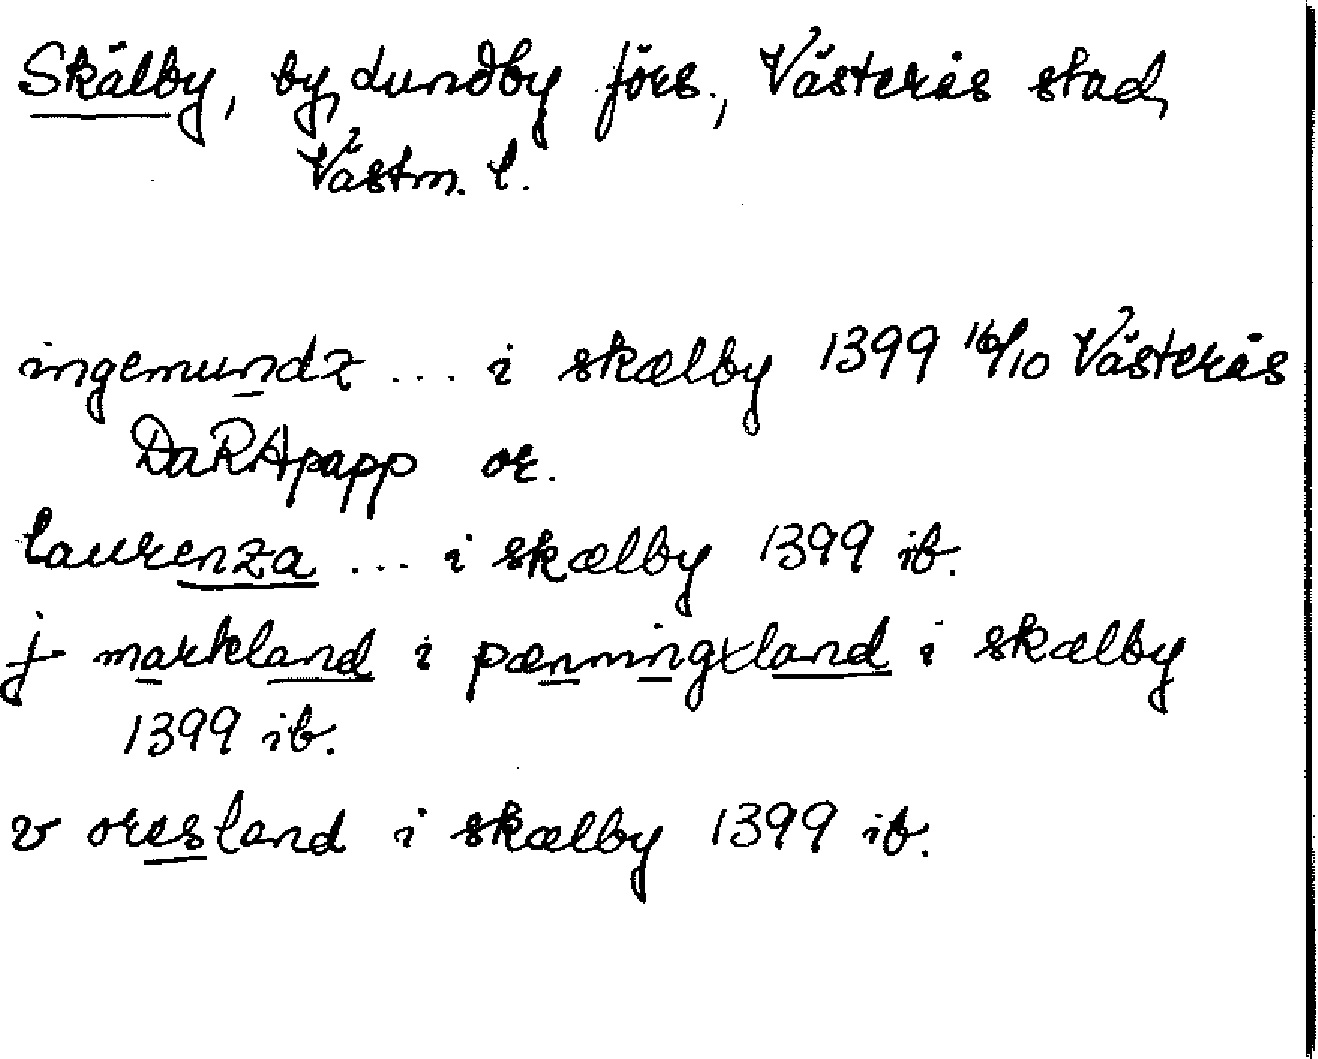 Skälby, by, Lundby förs., Västerås stad,
Västm. l.
ingemundz ... i skælby 1399 16/10 Västerås
DaRApapp or.
laurenza ... i skælby 1399 ib.
j markland i pænningxland i skælby
1399 ib.
v oresland i skælby 1399 ib.